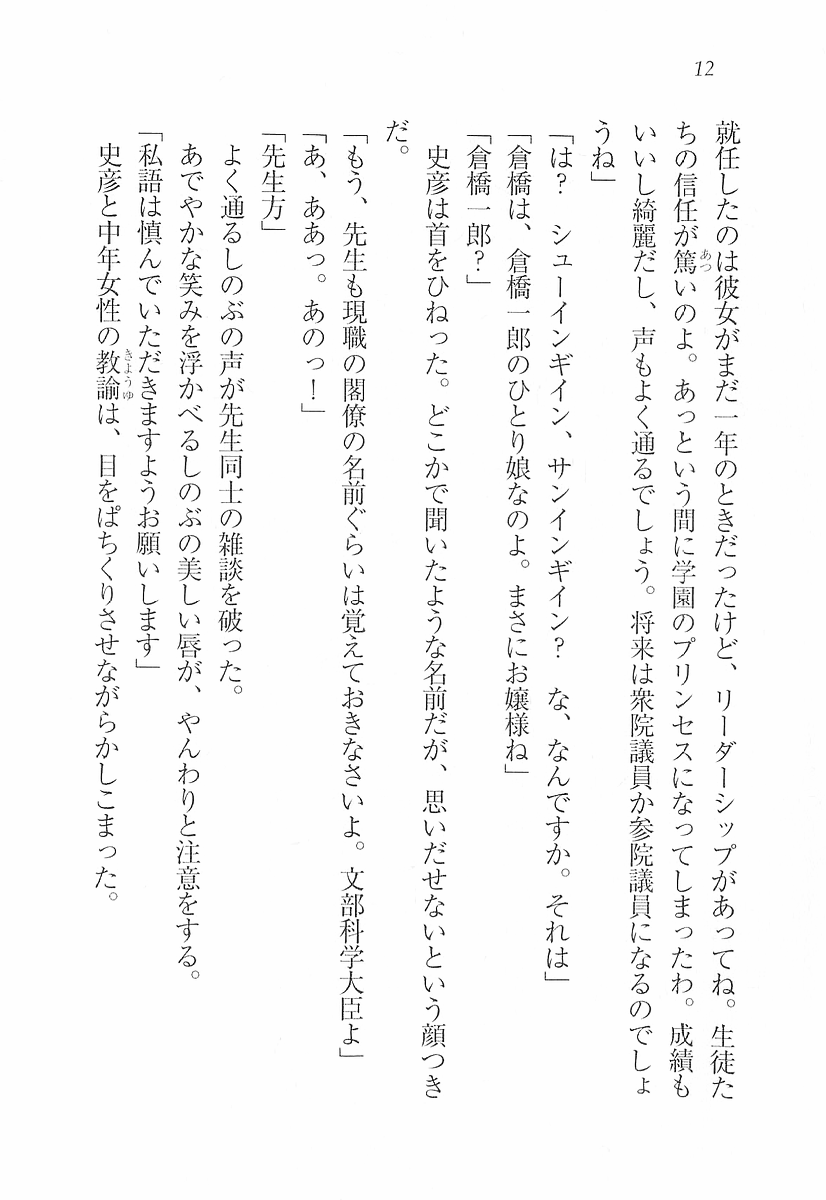 12
就任したのは彼女がまだ一年のときだったけど、リーダーシップがあってね。生徒た
ちの信任が篤いのよ。あっという間に学園のプリンセスになってしまったわ。成績も
いいし綺麗だし、声もよく通るでしょう。将来は衆院議員か参院議員になるのでしょ
うね」
「は？　シューインギイン、サンインギイン？　な、なんですか。それは」
「倉橋は、倉橋一郎のひとり娘なのよ。まさにお嬢様ね」
「倉橋一郎？」
　史彦は首をひねった。どこかで聞いたような名前だが、思いだせないという顔つき
だ。
「もう、先生も現職の閣僚の名前ぐらいは覚えておきなさいよ。文部科学大臣よ」
「あ、ああっ。あのっ！」
「先生方」
　よく通るしのぶの声が先生同士の雑談を破った。
　あでやかな笑みを浮かべるしのぶの美しい唇が、やんわりと注意をする。
「私語は慎んでいただきますようお願いします」
　史彦と中年女性の教諭は、目をぱちくりさせながらかしこまった。
あつ
きょうゆ